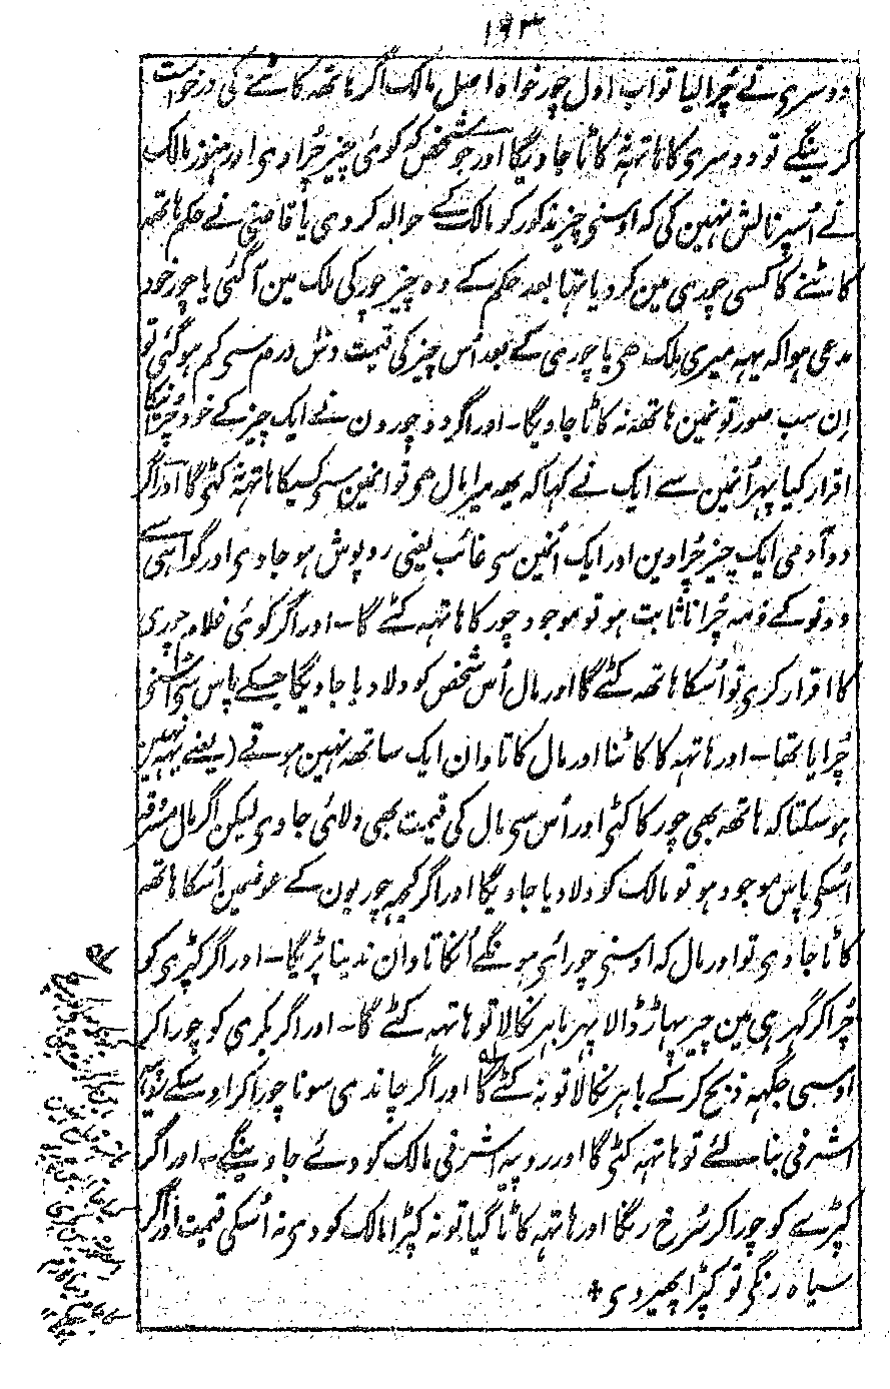 ۱۹۳
دوسری نے چُرالیا تو اب اول چور خواہ اصل مالک اگر ہاتھہ کاٹنے کی درخواست
کرینگے تو دوسری کا ہاتہہ کاٹا جاویگا اور جو شخص کہ کوئی چیز چُرا وی اور ہنوز مالک
نے اُسپر نالش نہین کی کہ اوسنی چیز مذکور کو مالک کے حوالہ کر دی یا قاضی نے حکم ہاتھہ
کاٹنے کا کسی چوری مین کر دیا تہا بعد حکم کے وہ چیز چور کی ملک مین آ گئی یا چور خود
مدعی ہوا کہ یہہ میری ملک ہی یا چوری کے بعد اُس چیز کی قیمت دش درم سی کم ہو گئی تو
اِن سب صورتونمین ہاتھہ نہ کاٹا جاویگا۔ اور اگر دو چورون نے ایک چیز کے خود چُرانیکا
اقرار کیا پہر اُنمین سے ایک نے کہا کہ یہہ میرا مال ہی تو اُنمین سی کسیکا ہاتہہ نہ کٹیگا اور اگر
دو آدمی ایک چیز چُراوین اور ایک اُنمین سی غائب یعنی روپوش ہو جاوی اور گواہی سے
دونو کے ذمہ چُرانا ثابت ہو تو موجود چور کا ہاتہہ کٹے گا۔ اور اگر کوئی غلام چوری
کا اقرار کری تو اُسکا ہاتھہ کٹے گا اور مال اُس شخص کو دلا دیا جاویگا جسکے پاس سی اُسنی
چُرایا تھا۔ اور ہاتہہ کا کاٹنا اور مال کا تاوان ایک ساتھہ نہین ہوتے (یعنے یہہ نہین
ہو سکتا کہ ہاتھہ بھی چور کا کٹی اور اُس سی مال کی قیمت بھی دلائی جاوی لیکن اگر مال مسروقہ
اُسکی پاس موجود ہو تو مالک کو دلا دیا جاویگا اور اگر کچہہ چوریون کے عوضمین اُسکا ہاتھہ
کاٹا جاوی تو اور مال کہ اوسنی چورائی ہونگے اُنکا تاوان ندینا پڑیگا۔ اور اگر کپڑی کو
چُرا کر گہر ہی مین چیر پہاڑ ڈالا پہر باہر نکالا تو ہاتہہ کٹے گا۔ اور اگر بکری کو چورا کر
اوسی جگہہ ذبح کر کے باہر نکالا تو نہ کٹے گا اور اگر چاندی سونا چورا کر اوسکے روپیہ
اشرفی بنا لئے تو ہاتہہ کٹی گا اور روپیہ اشرفی مالک کو دئے جاوینگے۔ اور اگر
کپڑے کو چورا کر سُرخ رنگا اور ہاتہہ کاٹا گیا تو نہ کپڑا مالک کو دی نہ اُسکی قیمت اور اگر
سیاہ رنگی تو کپڑا پھیر دی